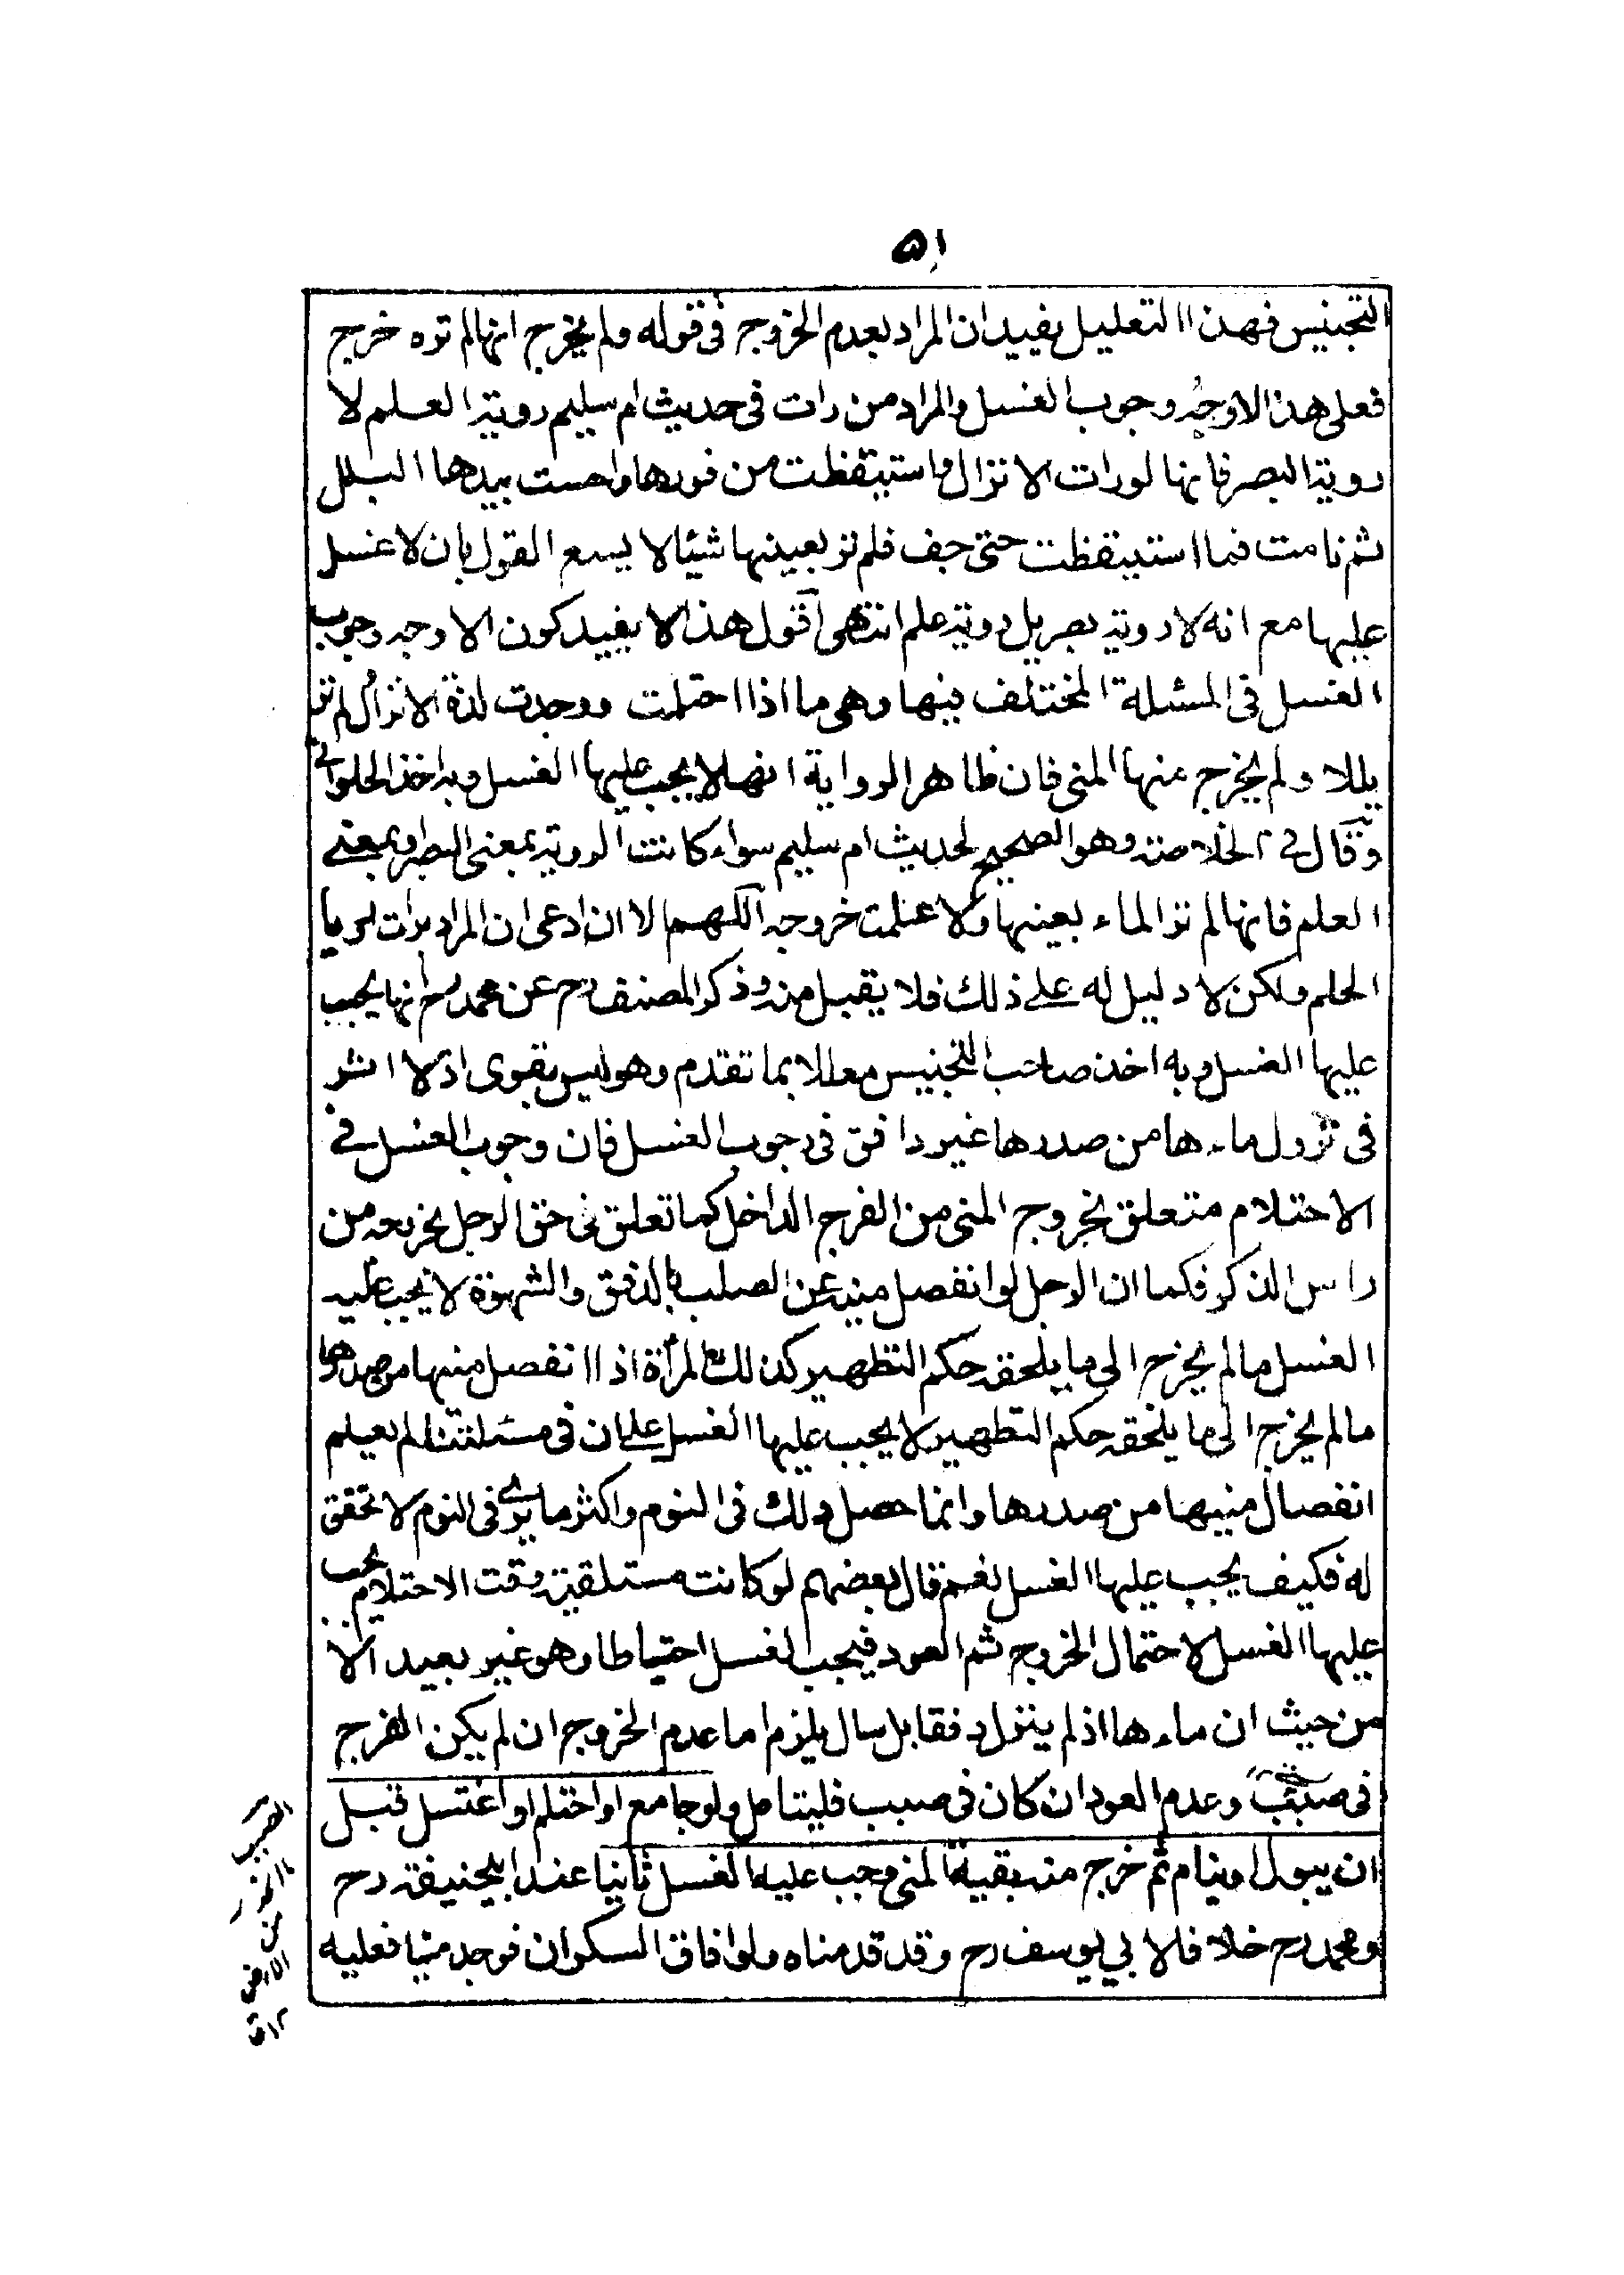 ۵۱
التجنيس فهذا التعليل يفيد ان المراد بعدم الخروج فى قوله ولم يخرج انها لم تره خرج
فعلى هذا الاوجه وجوب الغسل والمراد من رات فى حديث ام سليم روية العلم لا
روية البصر فانها لو رات الانزال واستيقظت من فورها واحست بيدها البلل
ثم نامت فما استيقظت حتى جف فلم تر بعينها شيئا لا يسع القول بان لا غسل
عليها مع انه لا روية بصر بل روية علم انتهى اقول هذا لا يفيد كون الاوجه وجوب
الغسل فى المسئلة المختلف فيها وهى ما اذا احتلمت ووجدت لذة الانزال لم تر
بللا ولم يخرج منها المنى فان ظاهر الرواية انه لا يجب عليها الغسل وبه اخذ الحلوانى
وقال فى الخلاصة وهو الصحيح لحديث ام سليم سواء كانت الروية بمعنى البصر او بمعنى
العلم فانها لم تر الماء بعينها ولا علمت خروجه اللهم الا ان ادعى ان المراد برات رويا
الحلم ولكن لا دليل له على ذلك فلا يقبل منه وذكر المصنف رح عن محمد رح انها يجب
عليها الغسل وبه اخذ صاحب التجنيس معللا بما تقدم وهو ليس بقوى اذ لا اثر
فى نزول ماءها من صدرها غير دافق فى وجوب الغسل فان وجوب الغسل فى
الاحتلام متعلق بخروج المنى من الفرج الداخل كما تعلق فى حق الرجل بخروجه من
راس الذكر فكما ان الرجل لو انفصل منيه عن الصلب بالدفق والشهوة لا يجب عليه
الغسل ما لم يخرج الى ما يلحقه حكم التطهير كذلك المرأة اذا انفصل منيها من صدرها
ما لم يخرج الى ما يلحقه حكم التطهير لا يجب عليها الغسل على ان فى مسئلتنا لم يعلم
انفصال منيها من صدرها وانما حصل ذلك فى النوم واكثر ما يرى فى النوم لا تحقق
له فكيف يجب عليها الغسل نعم قال بعضهم لو كانت مستلقية وقت الاحتلام يجب
عليها الغسل لاحتمال الخروج ثم العود فيجب الغسل احتياطا وهو غير بعيد الا
من حيث ان ماءها اذ لم ينزل دفقا بل سال يلزم اما عدم الخروج ان لم يكن الفرج
فى صبب وعدم العود ان كان فى صبب فليتامل ولو جامع او احتلم او اغتسل قبل
ان يبول او ينام ثم خرج منه بقية المنى وجب عليه الغسل ثانيا عند ابيحنيفة رح
ومحمد رح خلافا لابي يوسف رح وقد قدمناه ولو افاق السكران فوجد منيا فعليه
الصبب
من
الارض
۱۲